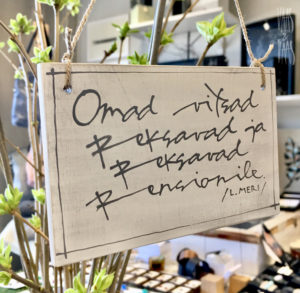 Omad vitsad
Peksavad ja
Peksavad
Pensionile.
/L. MERI/